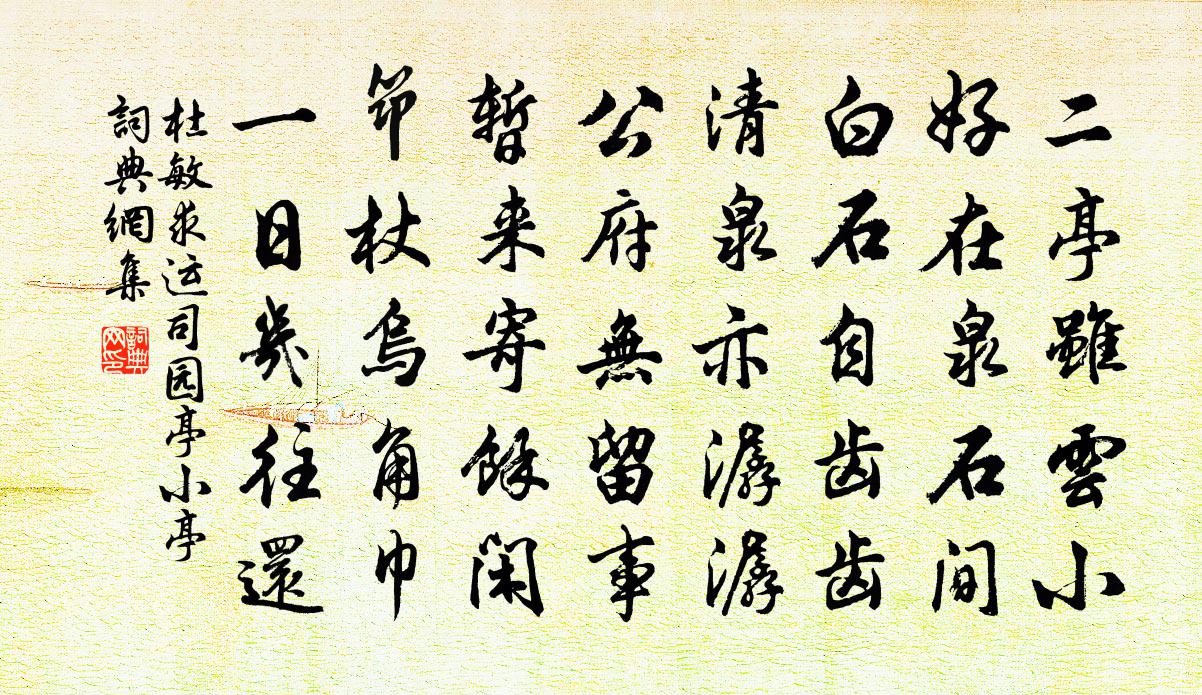 二亭雖雲小
好在泉石间
白石自齿齿
清泉亦潺潺
公府無留事
暫来寄餘闲
筇杖烏角巾
一日幾往還
杜敏求运司园亭小亭
詞典網集
詞典网印